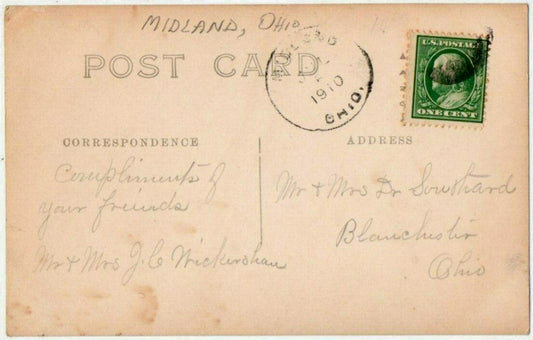 MIDLAND, Ohio
POST CARD
MIDLAND
1910
OHIO.
U.S. POSTAGE
ONE CENT
CORRESPONDENCE
ADDRESS
Compliments of
your friends
Mr & Mrs J. C Wickersham
Mr & Mrs Dr Southard
Blanchester
Ohio